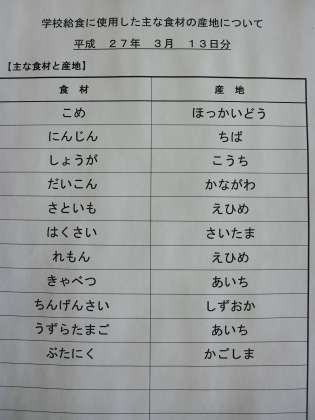 学校給食に使用した主な食材の産地について
平成　２７年　３月　１３日分
【主な食材と産地】
食材　産地
こめ　ほっかいどう
にんじん　ちば
しょうが　こうち
だいこん　かながわ
さといも　えひめ
はくさい　さいたま
れもん　えひめ
きゃべつ　あいち
ちんげんさい　しずおか
うずらたまご　あいち
ぶたにく　かごしま